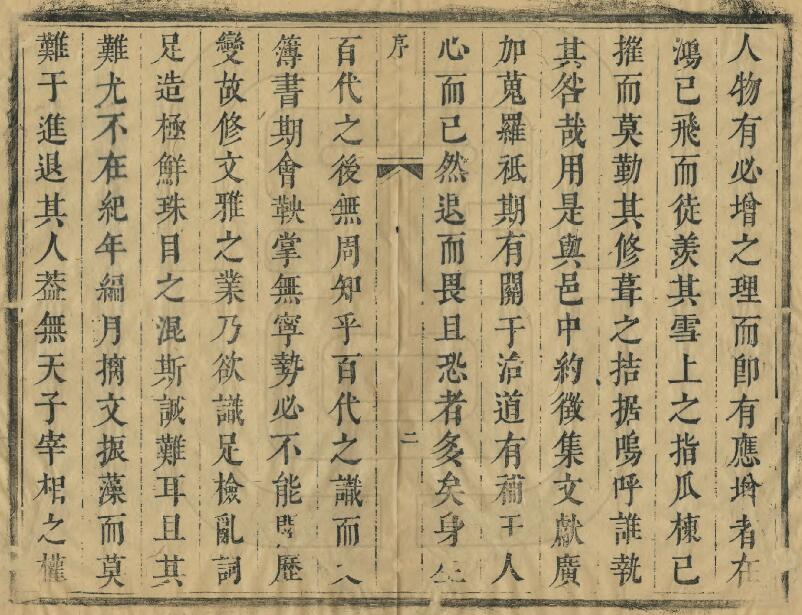 人物有必增之理而卽有應增者在
鴻已飛而徒羨其雪上之指瓜棟已
摧而莫勤其修葺之拮据嗚呼誰執
其咎哉用是與邑中約徵集文獻廣
加蒐羅祗期有關于治道有補于人
心而已然退而畏且恐者多矣身生
序
二
百代之後無周知乎百代之識而
簿書期會鞅掌無寧勢必不能閱歷
變故修文雅之業乃欲識足檢亂詞
足造極鮮珠目之混斯誠難耳且其
難尤不在紀年編月摛文振藻而莫
難于進退其人葢無天子宰相之權